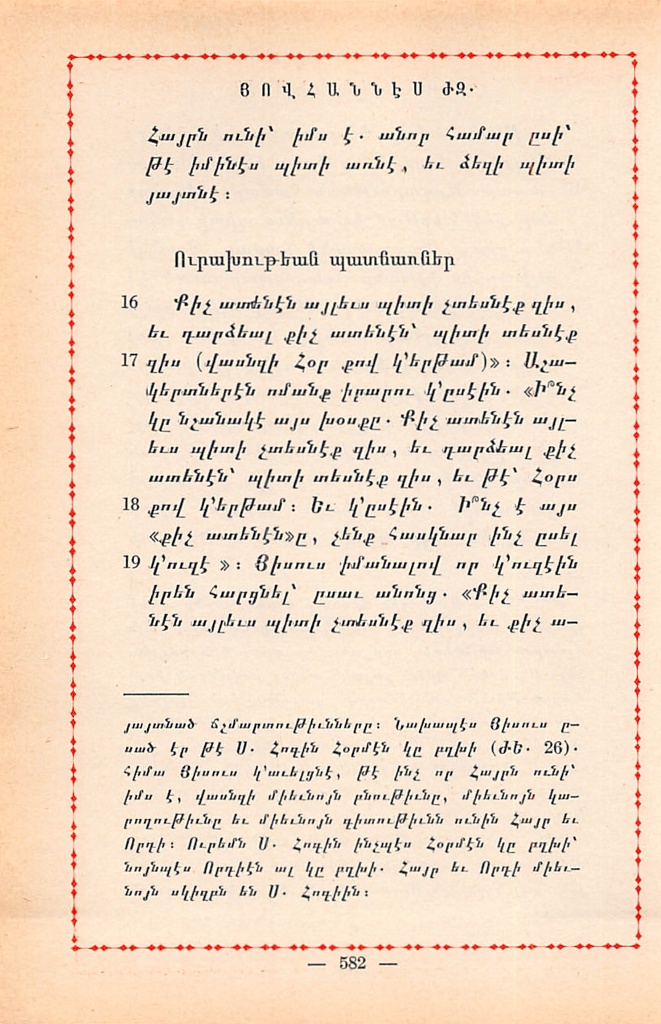 ՅՈՎՀԱՆՆԷՍ ԺԶ.
Հայրն ունի՝ իմս է. անոր համար ըսի՝
թէ իմինէս պիտի առնէ, եւ ձեզի պիտի
յայտնէ :
Ուրախութեան պատճառներ
16 Քիչ ատենէն այլեւս պիտի չտեսնէք զիս,
եւ դարձեալ քիչ ատենէն՝ պիտի տեսնէք
17 զիս (վասնզի Հօր քով կ'երթամ)» : Աշա-
կերտներէն ոմանք իրարու կ'ըսէին. «Ի՞նչ
կը նշանակէ այս խօսքը. Քիչ ատենէն այլ-
եւս պիտի չտեսնէք զիս, եւ դարձեալ քիչ
ատենէն՝ պիտի տեսնէք զիս, եւ թէ՝ Հօրս
18 քով կ'երթամ : Եւ կ'ըսէին. Ի՞նչ է այս
«քիչ ատենէն»ը, չենք հասկնար ինչ ըսել
19 կ'ուզէ » : Յիսուս իմանալով որ կ'ուզէին
իրեն հարցնել՝ ըսաւ անոնց. «Քիչ ատե-
նէն այլեւս պիտի չտեսնէք զիս, եւ քիչ ա-
յայտնած ճշմարտութիւնները : Նախապէս Յիսուս ը-
սած էր թէ Ս. Հոգին Հօրմէն կը բղխի (ԺԵ. 26).
հիմա Յիսուս կ'աւելցնէ, թէ ինչ որ Հայրն ունի՝
իմս է, վասնզի միեւնոյն բնութիւնը, միեւնոյն կա-
րողութիւնը եւ միեւնոյն գիտութիւնն ունին Հայր եւ
Որդի : Ուրեմն Ս. Հոգին ինչպէս Հօրմէն կը բղխի՝
նոյնպէս Որդիէն ալ կը բղխի. Հայր եւ Որդի միեւ-
նոյն սկիզբն են Ս. Հոգիին :
— 582 —